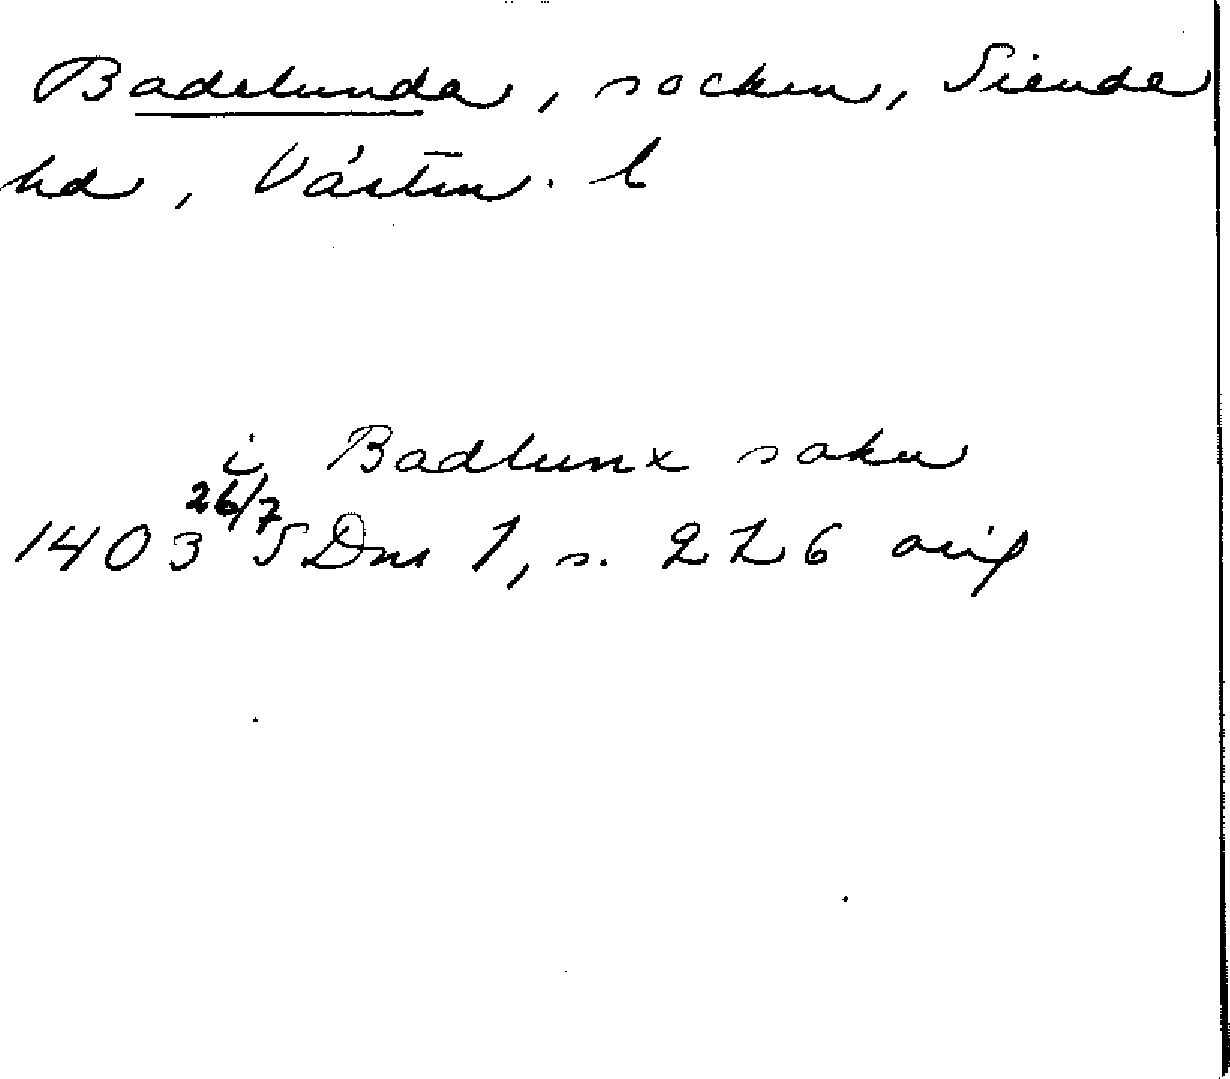 Badelunda, socken, Siende
hd, Västm. l
i Badlunx sokn
1403 26/7 SDns 1, s. 226 orig